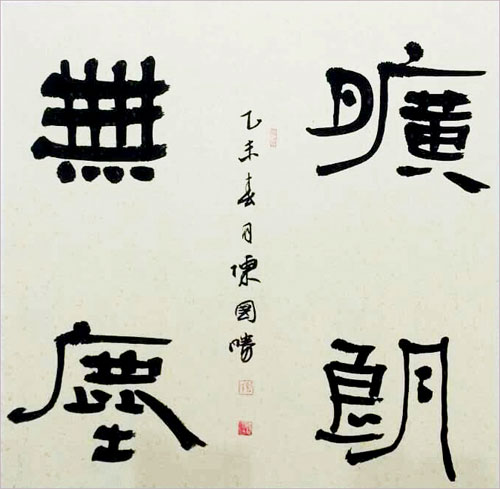 曠朗
無塵
乙未春月陳國勝